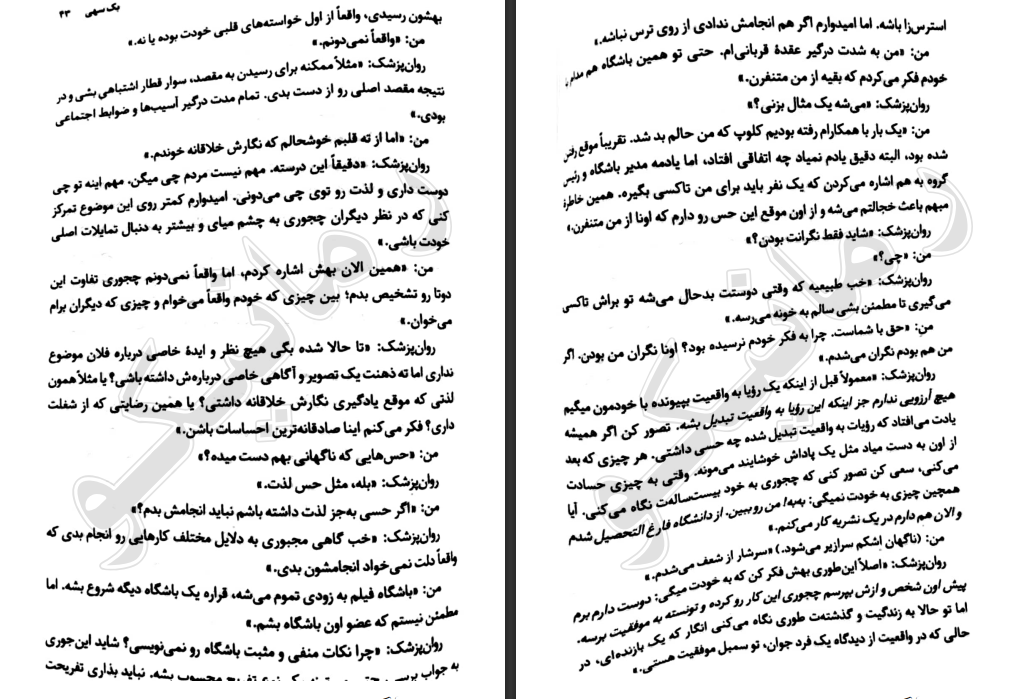 بک سهی ۴۳
بهشون رسیدی، واقعاً از اول خواسته‌های قلبی خودت بوده یا نه.»
من: «واقعاً نمی‌دونم.»
روان‌پزشک: «مثلاً ممکنه برای رسیدن به مقصد، سوار قطار اشتباهی بشی و در
نتیجه مقصد اصلی رو از دست بدی. تمام مدت درگیر آسیب‌ها و ضوابط اجتماعی
بودی.»
من: «اما از ته قلبم خوشحالم که نگارش خلاقانه خوندم.»
روان‌پزشک: «دقیقاً این درسته. مهم نیست مردم چی میگن. مهم اینه تو چی
دوست داری و لذت رو توی چی می‌دونی. امیدوارم کمتر روی این موضوع تمرکز
کنی که در نظر دیگران چجوری به چشم میای و بیشتر به دنبال تمایلات اصلی
خودت باشی.»
من: «همین الان بهش اشاره کردم، اما واقعاً نمی‌دونم چجوری تفاوت این
دوتا رو تشخیص بدم؛ بین چیزی که خودم واقعاً می‌خوام و چیزی که دیگران برام
می‌خوان.»
روان‌پزشک: «تا حالا شده بگی هیچ نظر و ایدهٔ خاصی درباره فلان موضوع
نداری اما ته ذهنت یک تصویر و آگاهی خاصی درباره‌ش داشته باشی؟ یا مثلاً همون
لذتی که موقع یادگیری نگارش خلاقانه داشتی؟ یا همین رضایتی که از شغلت
داری؟ فکر می‌کنم اینا صادقانه‌ترین احساسات باشن.»
من: «حس‌هایی که ناگهانی بهم دست میده؟»
روان‌پزشک: «بله، مثل حس لذت.»
من: «اگر حسی به‌جز لذت داشته باشم نباید انجامش بدم؟»
روان‌پزشک: «خب گاهی مجبوری به دلایل مختلف کارهایی رو انجام بدی که
واقعاً دلت نمی‌خواد انجامشون بدی.»
من: «باشگاه فیلم به زودی تموم می‌شه، قراره یک باشگاه دیگه شروع بشه. اما
مطمئن نیستم که عضو اون باشگاه بشم.»
روان‌پزشک: «چرا نکات منفی و مثبت باشگاه رو نمی‌نویسی؟ شاید این‌جوری
به جواب برسی. تفریح محسوب بشه. نباید بذاری تفریحت
استرس‌زا باشه. اما امیدوارم اگر هم انجامش ندادی از روی ترس نباشه.»
من: «من به شدت درگیر عقدهٔ قربانی‌ام. حتی تو همین باشگاه هم مدام با
خودم فکر می‌کردم که بقیه از من متنفرن.»
روان‌پزشک: «می‌شه یک مثال بزنی؟»
من: «یک بار با همکارام رفته بودیم کلوپ که من حالم بد شد. تقریباً موقع رفتن
شده بود، البته دقیق یادم نمیاد چه اتفاقی افتاد، اما یادمه مدیر باشگاه و رئیس
گروه به هم اشاره می‌کردن که یک نفر باید برای من تاکسی بگیره. همین خاطرهٔ
مبهم باعث خجالتم می‌شه و از اون موقع این حس رو دارم که اونا از من متنفرن.»
روان‌پزشک: «شاید فقط نگرانت بودن؟»
من: «چی؟»
روان‌پزشک: «خب طبیعیه که وقتی دوستت بدحال می‌شه تو براش تاکسی
می‌گیری تا مطمئن بشی سالم به خونه می‌رسه.»
من: «حق با شماست. چرا به فکر خودم نرسیده بود؟ اونا نگران من بودن. اگر
من هم بودم نگران می‌شدم.»
روان‌پزشک: «معمولاً قبل از اینکه یک رؤیا به واقعیت بپیونده با خودمون میگیم
هیچ آرزویی ندارم جز اینکه این رؤیا به واقعیت تبدیل بشه. تصور کن اگر همیشه
یادت می‌افتاد که رؤیات به واقعیت تبدیل شده چه حسی داشتی. هر چیزی که بعد
از اون به دست میاد مثل یک پاداش خوشایند می‌مونه. وقتی به چیزی حسادت
می‌کنی، سعی کن تصور کنی که چجوری به خود بیست‌ساله‌ت نگاه می‌کنی. آیا
همچین چیزی به خودت نمیگی: به‌به! من رو ببین. از دانشگاه فارغ التحصیل شدم
و الان هم دارم در یک نشریه کار می‌کنم.»
من: (ناگهان اشکم سرازیر می‌شود.) «سرشار از شعف می‌شدم.»
روان‌پزشک: «اصلاً این‌طوری بهش فکر کن که به خودت میگی: دوست دارم برم
پیش اون شخص و ازش بپرسم چجوری این کار رو کرده و تونسته به موفقیت برسه.
اما تو حالا به زندگیت و گذشته‌ت طوری نگاه می‌کنی انگار که یک بازنده‌ای، در
حالی که در واقعیت از دیدگاه یک فرد جوان، تو سمبل موفقیت هستی.»